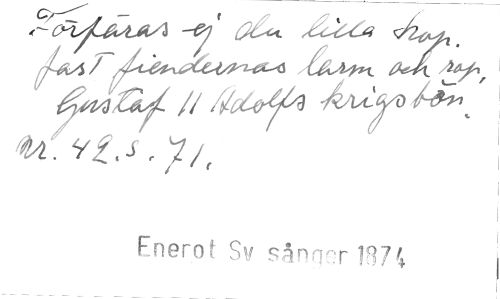 Förfäras ej du lilla hop.
fast fiendernas larm och rop,
Gustaf II Adolfs krigsbön.
nr. 42.s.71.
Enerot Sv sånger 1874